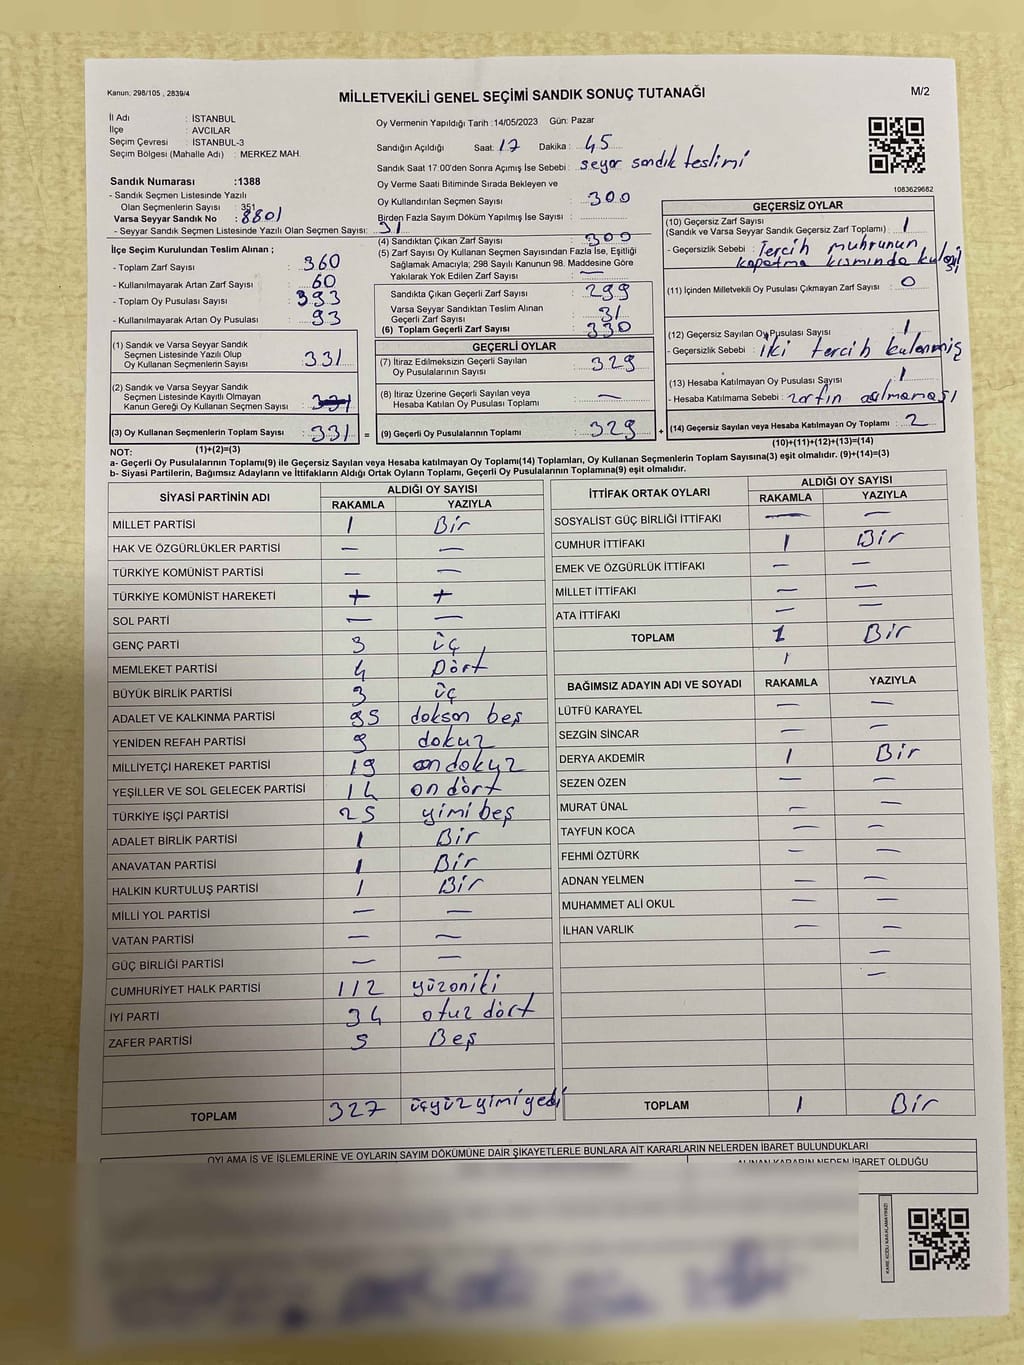 Kanun: 298/105 , 2839/4
MİLLETVEKİLİ GENEL SEÇİMİ SANDIK SONUÇ TUTANAĞI
M/2
İl Adı : İSTANBUL
İlçe : AVCILAR
Seçim Çevresi : İSTANBUL-3
Seçim Bölgesi (Mahalle Adı) : MERKEZ MAH.
Sandık Numarası :1388
- Sandık Seçmen Listesinde Yazılı
Olan Seçmenlerin Sayısı : 351
Varsa Seyyar Sandık No : 8801
- Seyyar Sandık Seçmen Listesinde Yazılı Olan Seçmen Sayısı: 31
Oy Vermenin Yapıldığı Tarih :14/05/2023 Gün: Pazar
Sandığın Açıldığı Saat: 17 Dakika : 45
Sandık Saat 17.00'den Sonra Açımış İse Sebebi : seyar sandık teslimi
Oy Verme Saati Bitiminde Sırada Bekleyen ve
Oy Kullandırılan Seçmen Sayısı : 300
Birden Fazla Sayım Döküm Yapılmış İse Sayısı :
1083629682
İlçe Seçim Kurulundan Teslim Alınan ;
- Toplam Zarf Sayısı : 360
- Kullanılmayarak Artan Zarf Sayısı : 60
- Toplam Oy Pusulası Sayısı : 393
- Kullanılmayarak Artan Oy Pusulası : 93
(1) Sandık ve Varsa Seyyar Sandık
Seçmen Listesinde Yazılı Olup
Oy Kullanan Seçmenlerin Sayısı : 331
(2) Sandık ve Varsa Seyyar Sandık
Seçmen Listesinde Kayıtlı Olmayan
Kanun Gereği Oy Kullanan Seçmen Sayısı :
(3) Oy Kullanan Seçmenlerin Toplam Sayısı : 331 =
(1)+(2)=(3)
(4) Sandıktan Çıkan Zarf Sayısı : 300
(5) Zarf Sayısı Oy Kullanan Seçmen Sayısından Fazla İse, Eşitliği
Sağlamak Amacıyla; 298 Sayılı Kanunun 98. Maddesine Göre
Yakılarak Yok Edilen Zarf Sayısı : —
Sandıkta Çıkan Geçerli Zarf Sayısı : 299
Varsa Seyyar Sandıktan Teslim Alınan
Geçerli Zarf Sayısı : 31
(6) Toplam Geçerli Zarf Sayısı : 330
GEÇERLİ OYLAR
(7) İtiraz Edilmeksizin Geçerli Sayılan
Oy Pusulalarının Sayısı : 329
(8) İtiraz Üzerine Geçerli Sayılan veya
Hesaba Katılan Oy Pusulası Toplamı : —
(9) Geçerli Oy Pusulalarının Toplamı : 329 +
GEÇERSİZ OYLAR
(10) Geçersiz Zarf Sayısı
(Sandık ve Varsa Seyyar Sandık Geçersiz Zarf Toplamı) : 1
- Geçersizlik Sebebi : Tercih muhrunun
kapatma kısmında
(11) İçinden Milletvekili Oy Pusulası Çıkmayan Zarf Sayısı : 0
(12) Geçersiz Sayılan Oy Pusulası Sayısı : 1
- Geçersizlik Sebebi : iki tercih kulenmiş
(13) Hesaba Katılmayan Oy Pusulası Sayısı : 1
- Hesaba Katılmama Sebebi : zarfın açılmaması
(14) Geçersiz Sayılan veya Hesaba Katılmayan Oy Toplamı : 2
(10)+(11)+(12)+(13)=(14)
NOT:
a- Geçerli Oy Pusulalarının Toplamı(9) ile Geçersiz Sayılan veya Hesaba katılmayan Oy Toplamı(14) Toplamları, Oy Kullanan Seçmenlerin Toplam Sayısına(3) eşit olmalıdır. (9)+(14)=(3)
b- Siyasi Partilerin, Bağımsız Adayların ve İttifakların Aldığı Ortak Oyların Toplamı, Geçerli Oy Pusulalarının Toplamına(9) eşit olmalıdır.
SİYASİ PARTİNİN ADI ALDIĞI OY SAYISI
RAKAMLA YAZIYLA
MİLLET PARTİSİ 1 Bir
HAK VE ÖZGÜRLÜKLER PARTİSİ — —
TÜRKİYE KOMÜNİST PARTİSİ — —
TÜRKİYE KOMÜNİST HAREKETİ + +
SOL PARTİ — —
GENÇ PARTİ 3 üç
MEMLEKET PARTİSİ 4 Dört
BÜYÜK BİRLİK PARTİSİ 3 üç
ADALET VE KALKINMA PARTİSİ 95 dokson beş
YENİDEN REFAH PARTİSİ 9 dokuz
MİLLİYETÇİ HAREKET PARTİSİ 19 ondokuz
YEŞİLLER VE SOL GELECEK PARTİSİ 14 on dört
TÜRKİYE İŞÇİ PARTİSİ 25 yimi beş
ADALET BİRLİK PARTİSİ 1 Bir
ANAVATAN PARTİSİ 1 Bir
HALKIN KURTULUŞ PARTİSİ 1 Bir
MİLLİ YOL PARTİSİ — —
VATAN PARTİSİ — —
GÜÇ BİRLİĞİ PARTİSİ — —
CUMHURİYET HALK PARTİSİ 112 yüzoniki
İYİ PARTİ 34 otuz dört
ZAFER PARTİSİ 5 Beş
TOPLAM 327 üçyüz yimi yedi
İTTİFAK ORTAK OYLARI ALDIĞI OY SAYISI
RAKAMLA YAZIYLA
SOSYALİST GÜÇ BİRLİĞİ İTTİFAKI — —
CUMHUR İTTİFAKI 1 Bir
EMEK VE ÖZGÜRLÜK İTTİFAKI — —
MİLLET İTTİFAKI — —
ATA İTTİFAKI — —
TOPLAM 1 Bir
1
BAĞIMSIZ ADAYIN ADI VE SOYADI RAKAMLA YAZIYLA
LÜTFÜ KARAYEL — —
SEZGİN SİNCAR — —
DERYA AKDEMİR 1 Bir
SEZEN ÖZEN — —
MURAT ÜNAL — —
TAYFUN KOCA — —
FEHMİ ÖZTÜRK — —
ADNAN YELMEN — —
MUHAMMET ALİ OKUL — —
İLHAN VARLIK — —
—
—
TOPLAM 1 Bir
OYLAMA İŞ VE İŞLEMLERİNE VE OYLARIN SAYIM DÖKÜMÜNE DAİR ŞİKAYETLERLE BUNLARA AİT KARARLARIN NELERDEN İBARET BULUNDUKLARI
ALINAN KARARIN NEDEN İBARET OLDUĞU